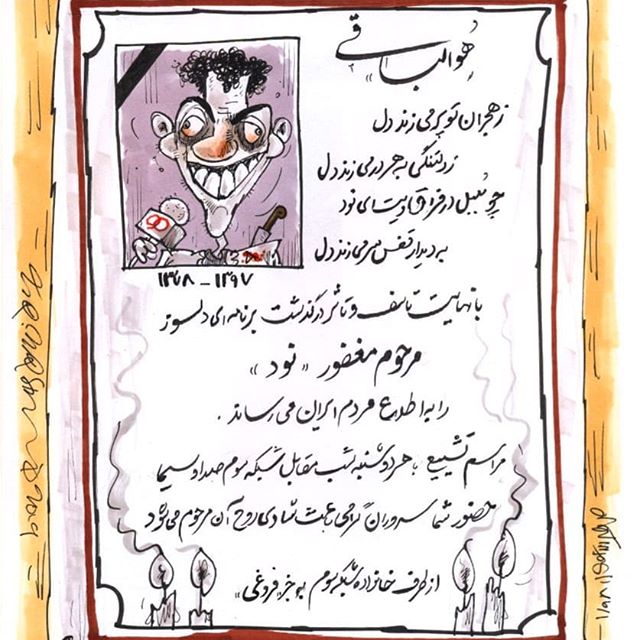 «هُوالباقی»
ز هجران تو پر می زند دل
ز دلتنگی به هر در می زند دل
چو بلبل در فراقت ای نود
به دیدار قفس سر می زند دل
۹۰
۱۳۷۸ - ۱۳۹۷
با نهایت تاسف و تاثر درگذشت برنامه ای دلسوز
مرحوم مغفور «نود»
را به اطلاع مردم ایران می رساند.
مراسم تشییع: هر دوشنبه شب مقابل شبکه سوم صدا و سیما
حضور شما سروران گرامی باعث شادی روح آن مرحوم می شود
از طرف خانواده شبکه سوم «به جز فروغی»